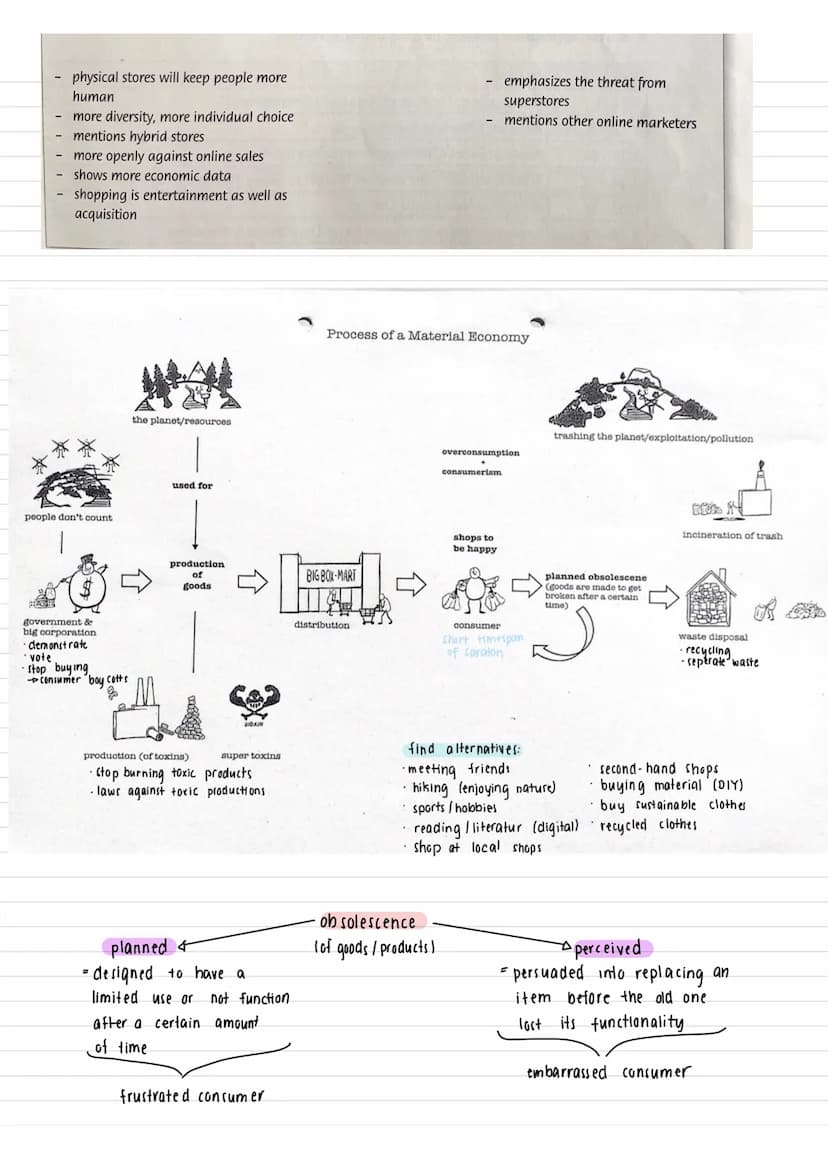 - physical stores will keep people more
human
- more diversity, more individual choice
- mentions hybrid stores
- more openly against online sales
- shows more economic data
- shopping is entertainment as well as
acquisition
- emphasizes the threat from
superstores
- mentions other online marketers
Process of a Material Economy
the planet/resources
used for
production
of
goods
people don't count
government &
big corporation
· demonstrate
· vote
· stop buying
→ consumer boycotts
$
BIG BOX-MART
distribution
overconsumption
+
consumerism
shops to
be happy
consumer
short timespan
of
planned obsolescene
(goods are made to get
broken after a certain
time)
trashing the planet/exploitation/pollution
incineration of trash
waste disposal
· recycling
· seperate waste
production (of toxins)
· stop burning toxic products
· laws against toxic productions
DIOXIN
super toxins
find alternatives:
· meeting friends
· hiking (enjoying nature)
· sports/hobbies
· reading/literatur (digital)
· shop at local shops
· second-hand shops
· buying material (DIY)
· buy sustainable clothes
· recycled clothes
obsolescence
(of goods/products)
planned
= designed to have a
limited use or not function
after a certain amount
of time
frustrated consumer
perceived
= persuaded into replacing an
item before the old one
lost its functionality
embarrassed consumer